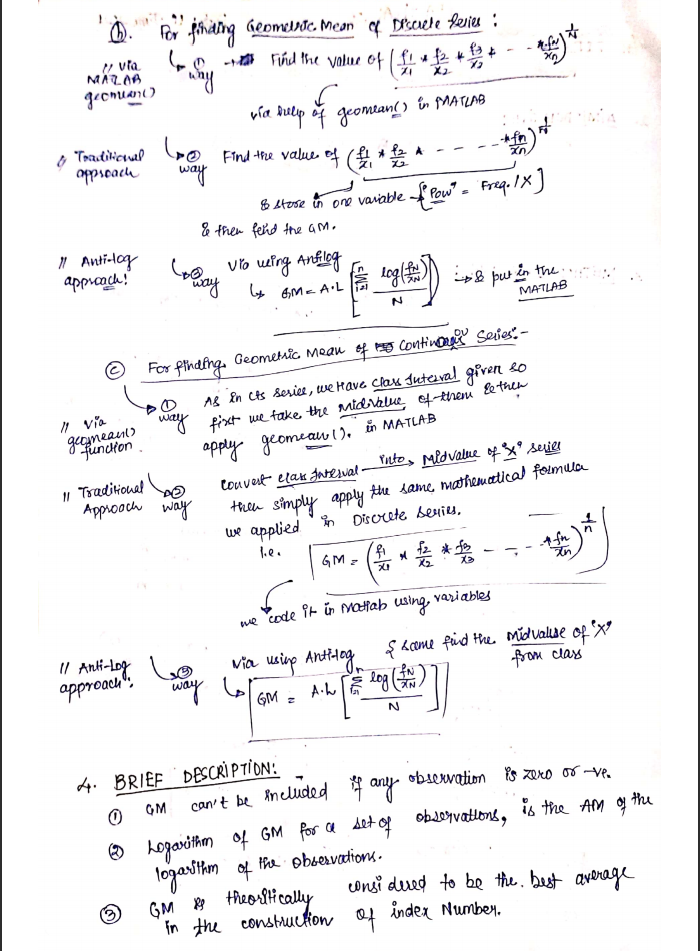 (b). For finding Geometric Mean of Discrete Series :
// via MATLAB geomean()
① way → Find the value of (f1/x1 * f2/x2 * f3/x3 * - - * fN/xn)^(1/N)
via help of geomean() in MATLAB
// Traditional approach
② way Find the value of (f1/x1 * f2/x2 * - - - - - * fn/xn)^(1/N)
& store in one variable - { "Pow" = Freq. / X ]
& then find the GM.
// Anti-log approach!
③ way Via using Antilog
GM = A.L [ Σ(i=1 to n) log(fN/xN) / N ] → & put in the MATLAB
(c) For finding Geometric Mean of Continuous Series:-
// via geomean() function
① way As in cts series, we have class Interval given so
first we take the Midvalue of them & then
apply geomean(). in MATLAB
// Traditional Approach
② way convert class Interval into Midvalue of "X" series
then simply apply the same mathematical formula
we applied in Discrete series.
i.e. GM = (f1/x1 * f2/x2 * f3/x3 - - - * fn/xn)^(1/n)
we code it in Matlab using variables
// Anti-Log approach:
③ way Via using Antilog & same find the midvalue of "X" from class
GM = A.L [ Σ(i=1 to n) log(fN/xN) / N ]
4. BRIEF DESCRIPTION:
① GM can't be included if any observation is zero or -ve.
② Logarithm of GM for a set of observations, is the AM of the
logarithm of the observations.
③ GM is theoritically considered to be the best average
in the construction of index Number.